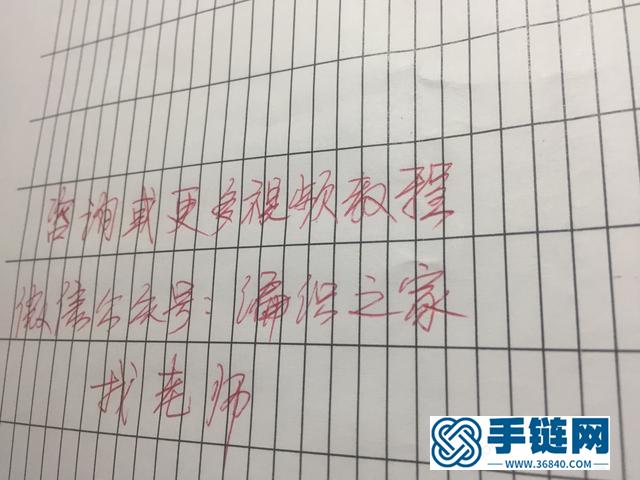 咨询或更多视频教程
微信公众号：编织之家
找老师
手链网
WWW.36840.COM